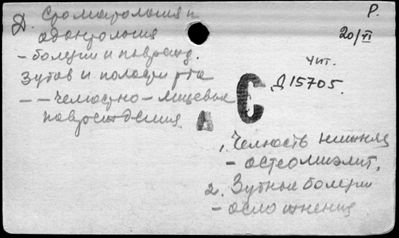 Д. Стоматология и Р.
одонтология 20/VI
- болезни и поврежд.
Зубов и полости рта чит.
- - Челюстно-лицевые Д15705.
повреждения. А С
1. Челюсть нижняя
- остеомиэлит.
2. Зубные болезни
- осложнения